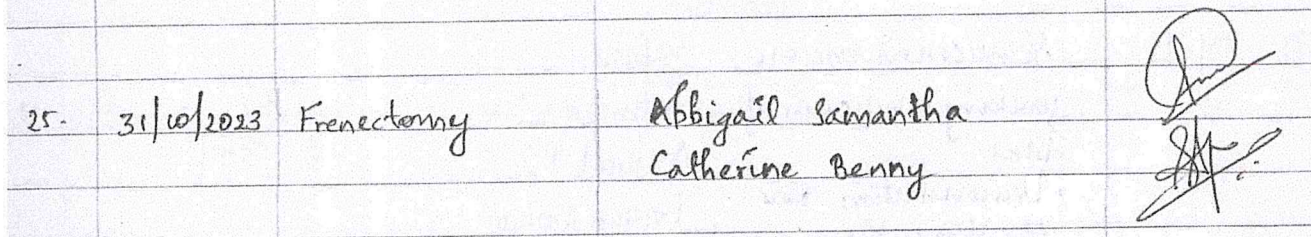 25. 31/10/2023 Frenectomy Abbigail Samantha
Catherine Benny